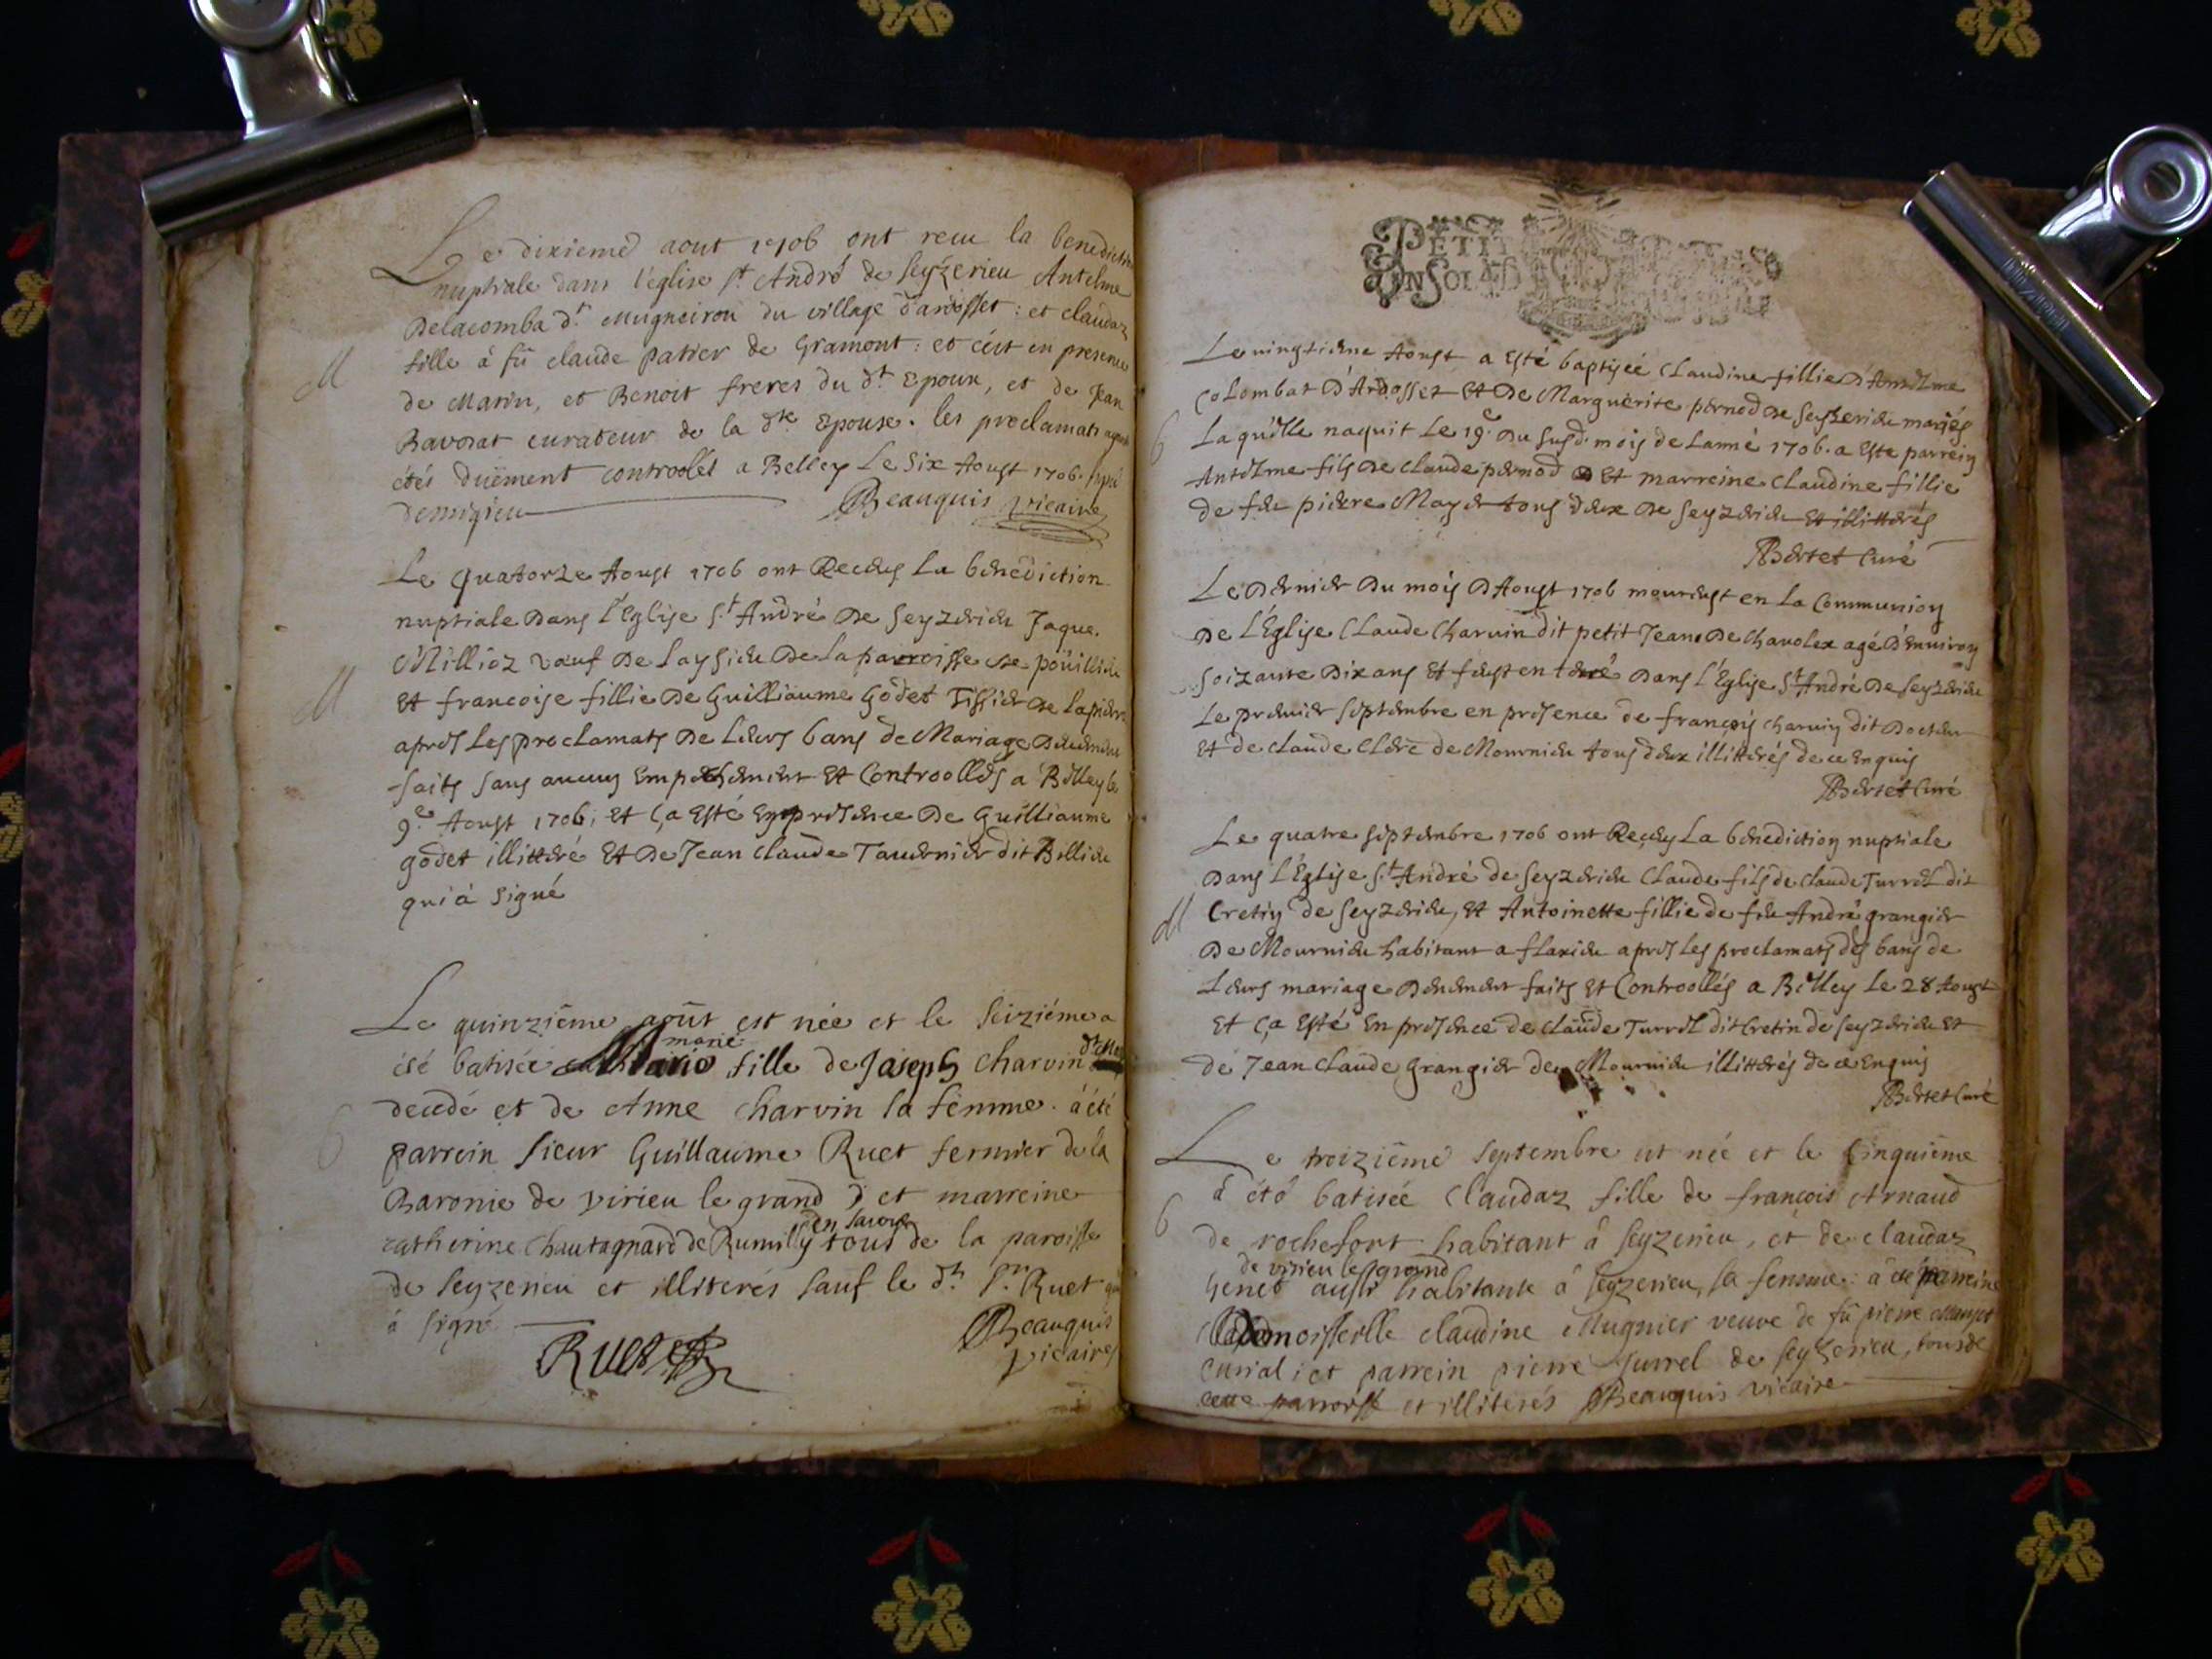 Le dixieme aout 1706 ont receu la benediction
nuptiale dans l'eglise st André de seyzerieu Antelme
Delacomba dt. Mugneirou du village d'ardosset: et claudaz
fille à fû claude patier de Gramont: et c'est en presence
M
de Marin, et Benoit freres du dt Epoux, et de Jean
Bavosat curateur de la dte Epouse. les proclamats ayant
étés duëment controolés a Belley Le Six Aoust 1706.
demigieu Beauquis vicaire
Le quatorze Aoust 1706 ont Receus La benediction
nuptiale Dans l'Eglise S.t André De Seyzerieu Jaque
Millioz veuf De Laysieu De La parroisse de poüillieu
M
Et francoise fillie De Guilliaume Godet Tissier De
apres Les proclamats De Leurs bans de Mariage Deuement
faits sans aucun Empechement Et Controollés a Belley le
9e. Aoust 1706; Et Ça Esté En presence De Guilliaume
godet illitteré Et De Jean Claude Tavernier dit Billieu
qui à signé
Le quinziême août est née et le seiziéme a
marie
été batisée Marie fille de Joseph Charvin
decedé et de Anne Charvin sa femme. à été
6
parrein sieur Guillaume Ruet fermier de la
Baronie de virieu le grand et marreine
en savoye
catherine Chautagnard de Rumilly tous de la paroisse
de seyzerieu et illiterés sauf le dt. sr. Ruet qui
à signé Beauquis
Ruet vicaire
PETIT
Le vingtieme Aoust a Esté baptisée Claudine fillie d'Antelme
Colombat D'Ardosset Et De Marguerite pernod De Seyzerieu mariés
6
Laquelle naquit Le 19e. Du susd. mois de Lanné 1706. a Este parrein
Antelme fils De claude pernod Et marreine Claudine fillie
de feu pierre May et tous deux De Seyzerieu Et illitterés
Bertet Curé
Le Dernier Du mois D'Aoust 1706 mourust en La Communion
De L'Église Claude Charvin dit petit Jean De Chavolex agé D'Environ
soizante Dix ans Et fust enterré Dans L'Église St André De Seyzerieu
Le premier septembre en presence de françois Charvin dit Docteur
Et de Claude Clerc de Mournieu tous deux illitterés de ce Enquis
Bertet Curé
Le quatre septembre 1706 ont Receus La benediction nuptiale
Dans L'Église S.t André de Seyzerieu Claude fils de Claude Turrel dit
M
Cretin de Seyzerieu, Et Antoinette fillie de feu André grangier
De Mournieu habitant a flaxieu apres Les proclamats des bans de
Leurs mariage Deuement faits Et Controollés a Belley Le 28 Aoust
Et Ça Esté En presence de Claude Turrel dit Cretin de Seyzerieu Et
de Jean Claude Grangier de Mournieu illitterés de ce Enquis
Bertet Curé
Le troiziême septembre est née et le cinquiême
à été batisée Claudaz fille de françois Arnaud
6
de rochefort habitant à seyzerieu, et de claudaz
de virieu le grand
Genet aussi habitante à seyzerieu, sa femme: à été marreine
Demoisselle claudine Mugnier veuve de fû pierre
curial; et parrein pierre Turrel de seyzerieu, tous de
cette parroisse et illiterés Beauquis vicaire